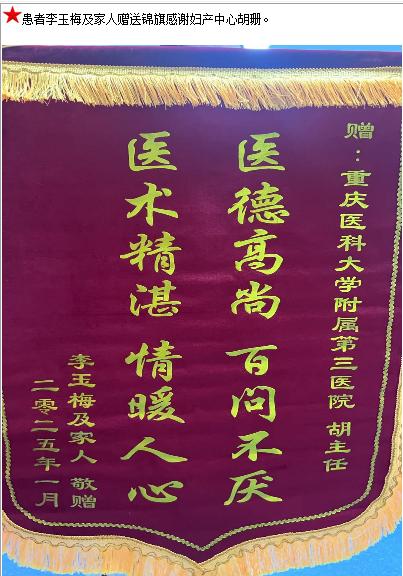 ★患者李玉梅及家人赠送锦旗感谢妇产中心胡珊。
赠：重庆医科大学附属第三医院 胡主任
医德高尚 百问不厌
医术精湛 情暖人心
李玉梅及家人 敬赠
二零二五年一月